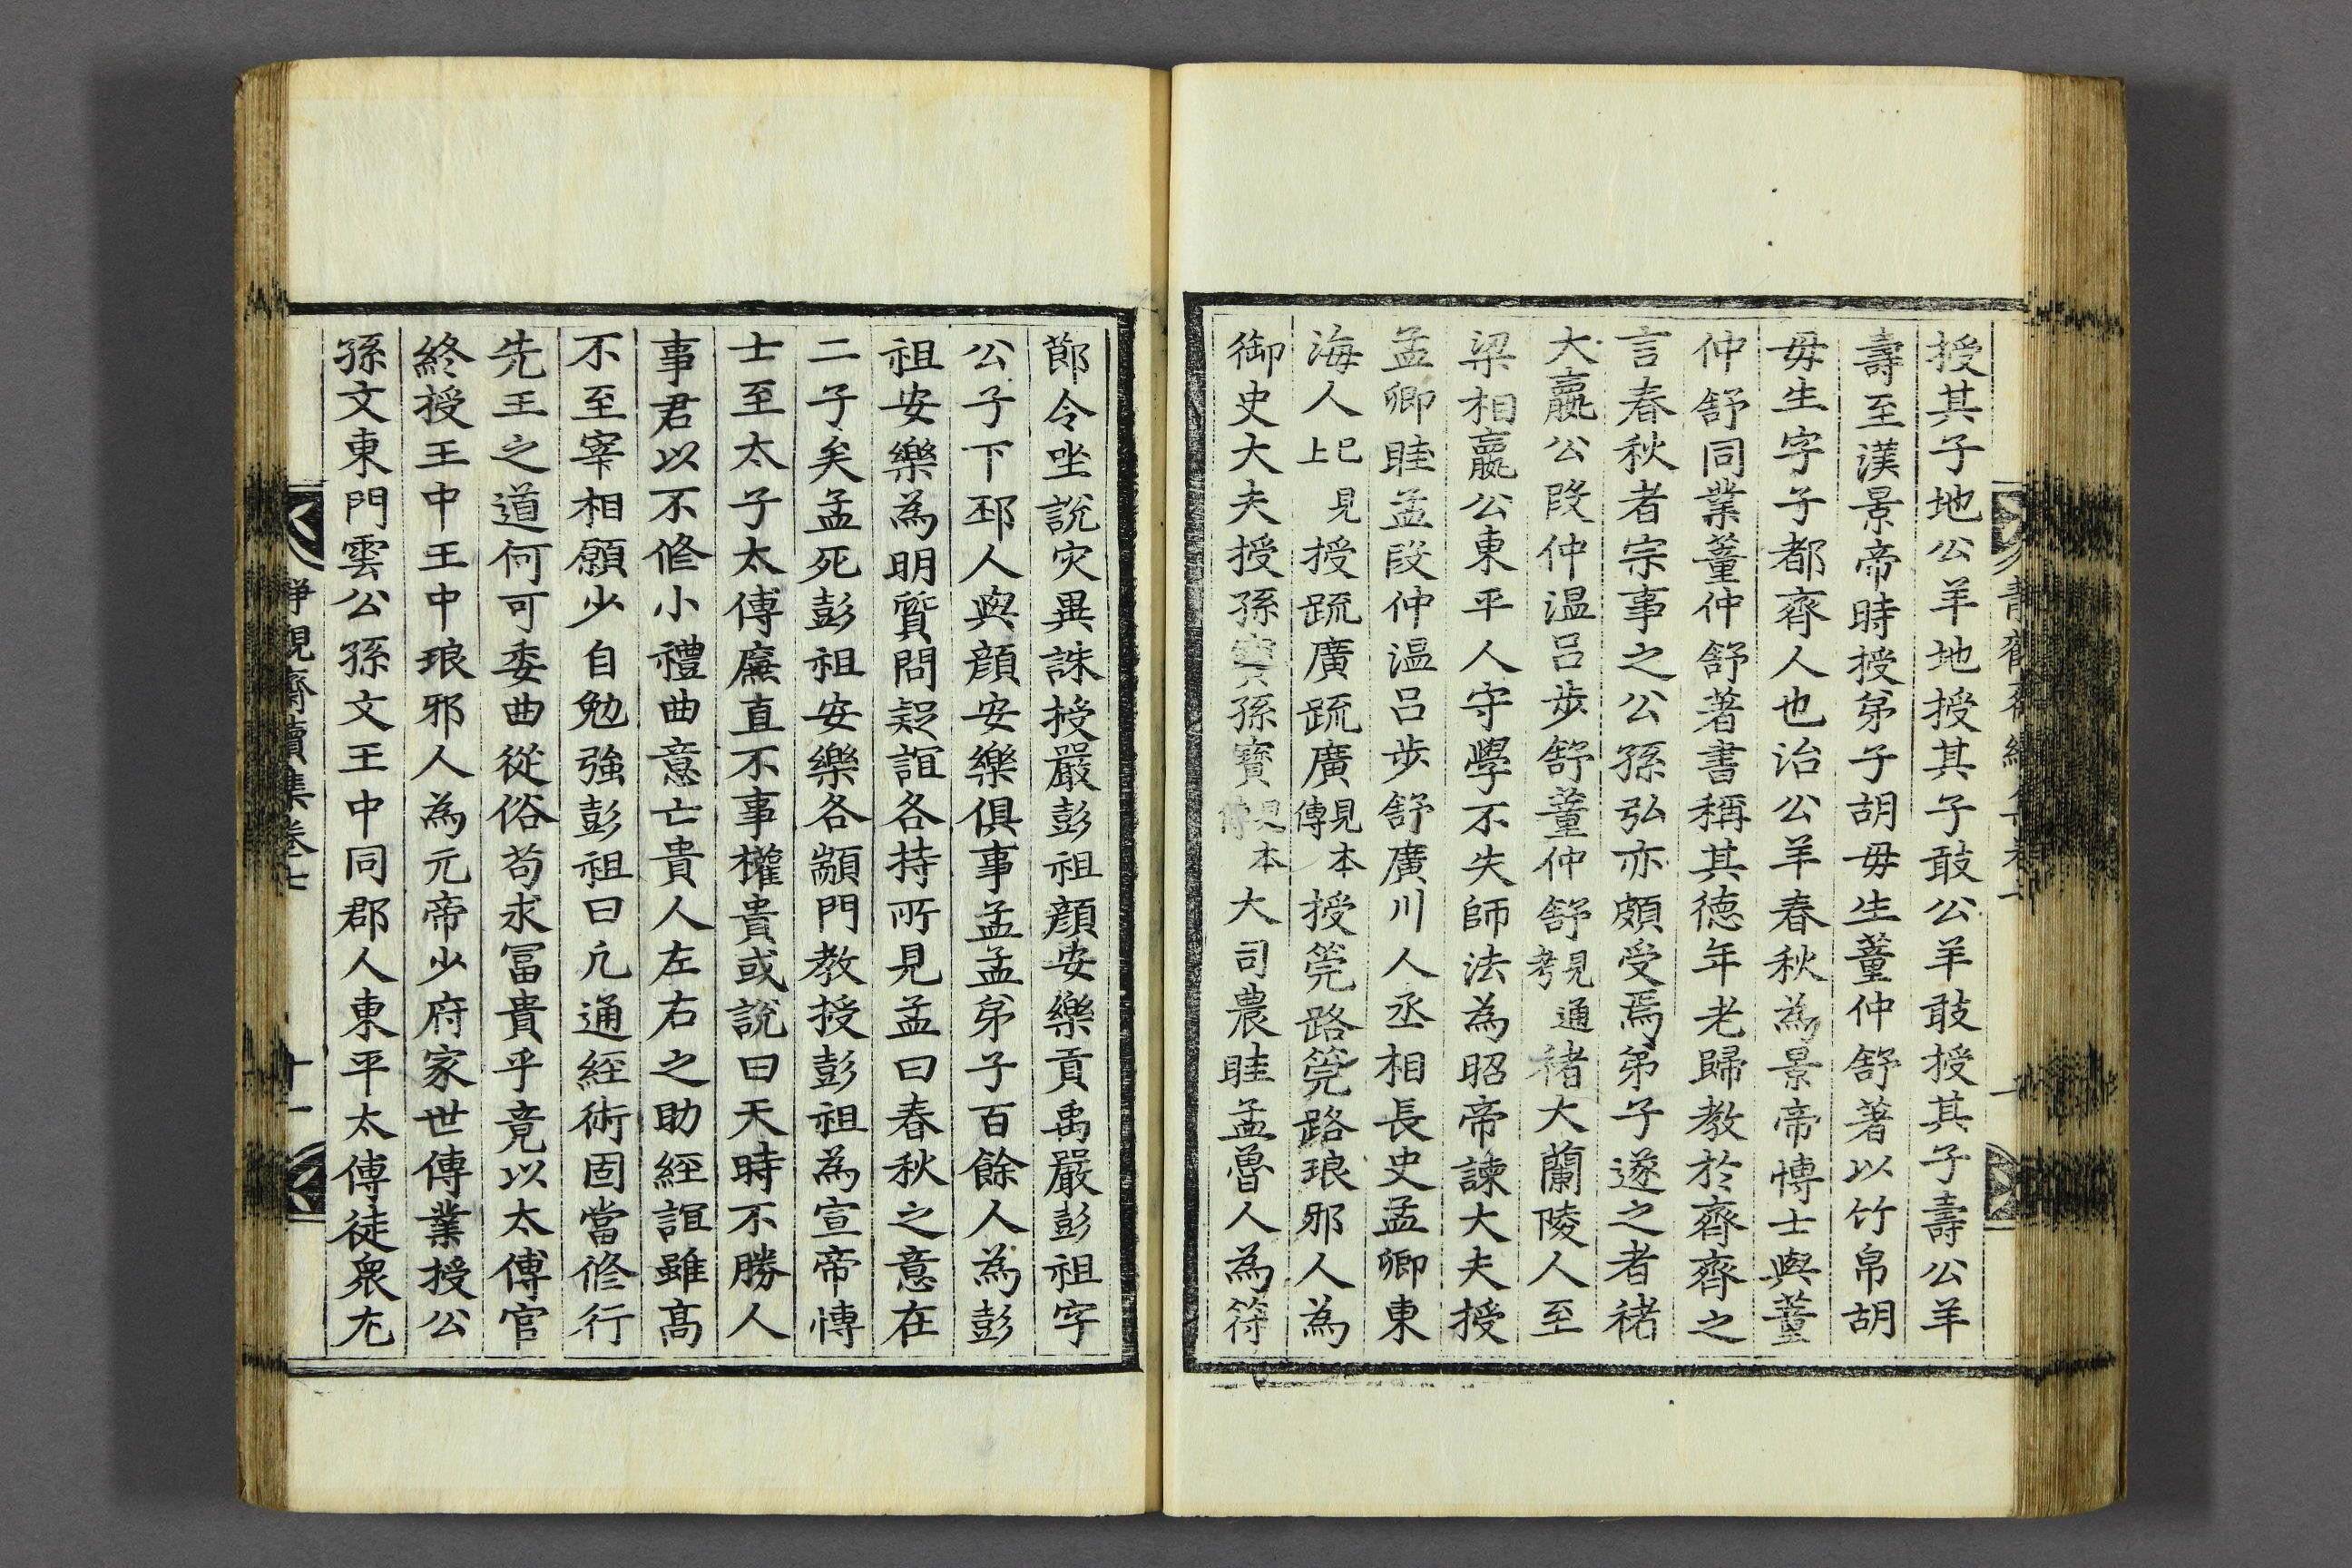 授其子地公羊地授其子敢公羊敢授其子壽公羊
壽至漢景帝時授弟子胡毋生董仲舒著以竹帛胡
毋生字子都齊人也治公羊春秋為景帝博士與董
仲舒同業董仲舒著書稱其德年老歸教於齊齊之
言春秋者宗事之公孫弘亦頗受焉弟子遂之者褚
大嬴公段仲温吕步舒董仲舒見通考褚大蘭陵人至
梁相嬴公東平人守學不失師法為昭帝諫大夫授
孟卿眭孟段仲温吕步舒廣川人丞相長史孟卿東
海人已見上授䟽廣䟽廣見本傳授筦路筦路琅邪人為
御史大夫授孫寶孫寶見本傳大司農眭孟魯人為符
節令坐說灾異誅授嚴彭祖顔安樂貢禹嚴彭祖字
公子下邳人與顔安樂俱事孟孟弟子百餘人為彭
祖安樂為明質問疑誼各持所見孟曰春秋之意在
二子矣孟死彭祖安樂各顓門教授彭祖為宣帝博
士至太子太傅廉直不事權貴或說曰天時不勝人
事君以不修小禮曲意亡貴人左右之助經誼雖高
不至宰相願少自勉強彭祖曰凢通経術固當修行
先王之道何可委曲從俗苟求冨貴乎竟以太傅官
終授王中王中琅邪人為元帝少府家世傳業授公
孫文東門雲公孫文王中同郡人東平太傅徒衆尢
靜觀齋續集卷七
十一